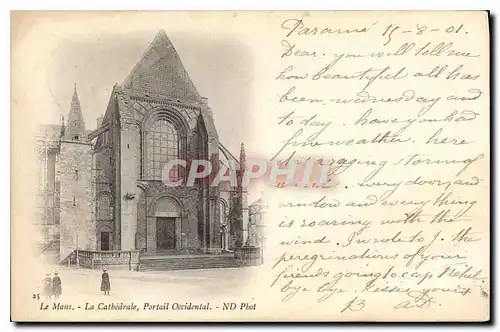 Paramé 15-8-01.
Dear. you will tell me
how beautiful all has
been wednesday and
to day. have you had
fine weather. here
raging storming
every door and
window and everything
is roaring with the
wind. I wrote to J. the
peregrinations of your
friends going to cap
bye bye. Kisses yours
25 Le Mans. - La Cathédrale, Portail Occidental. - ND Phot
CARTHAPRIA